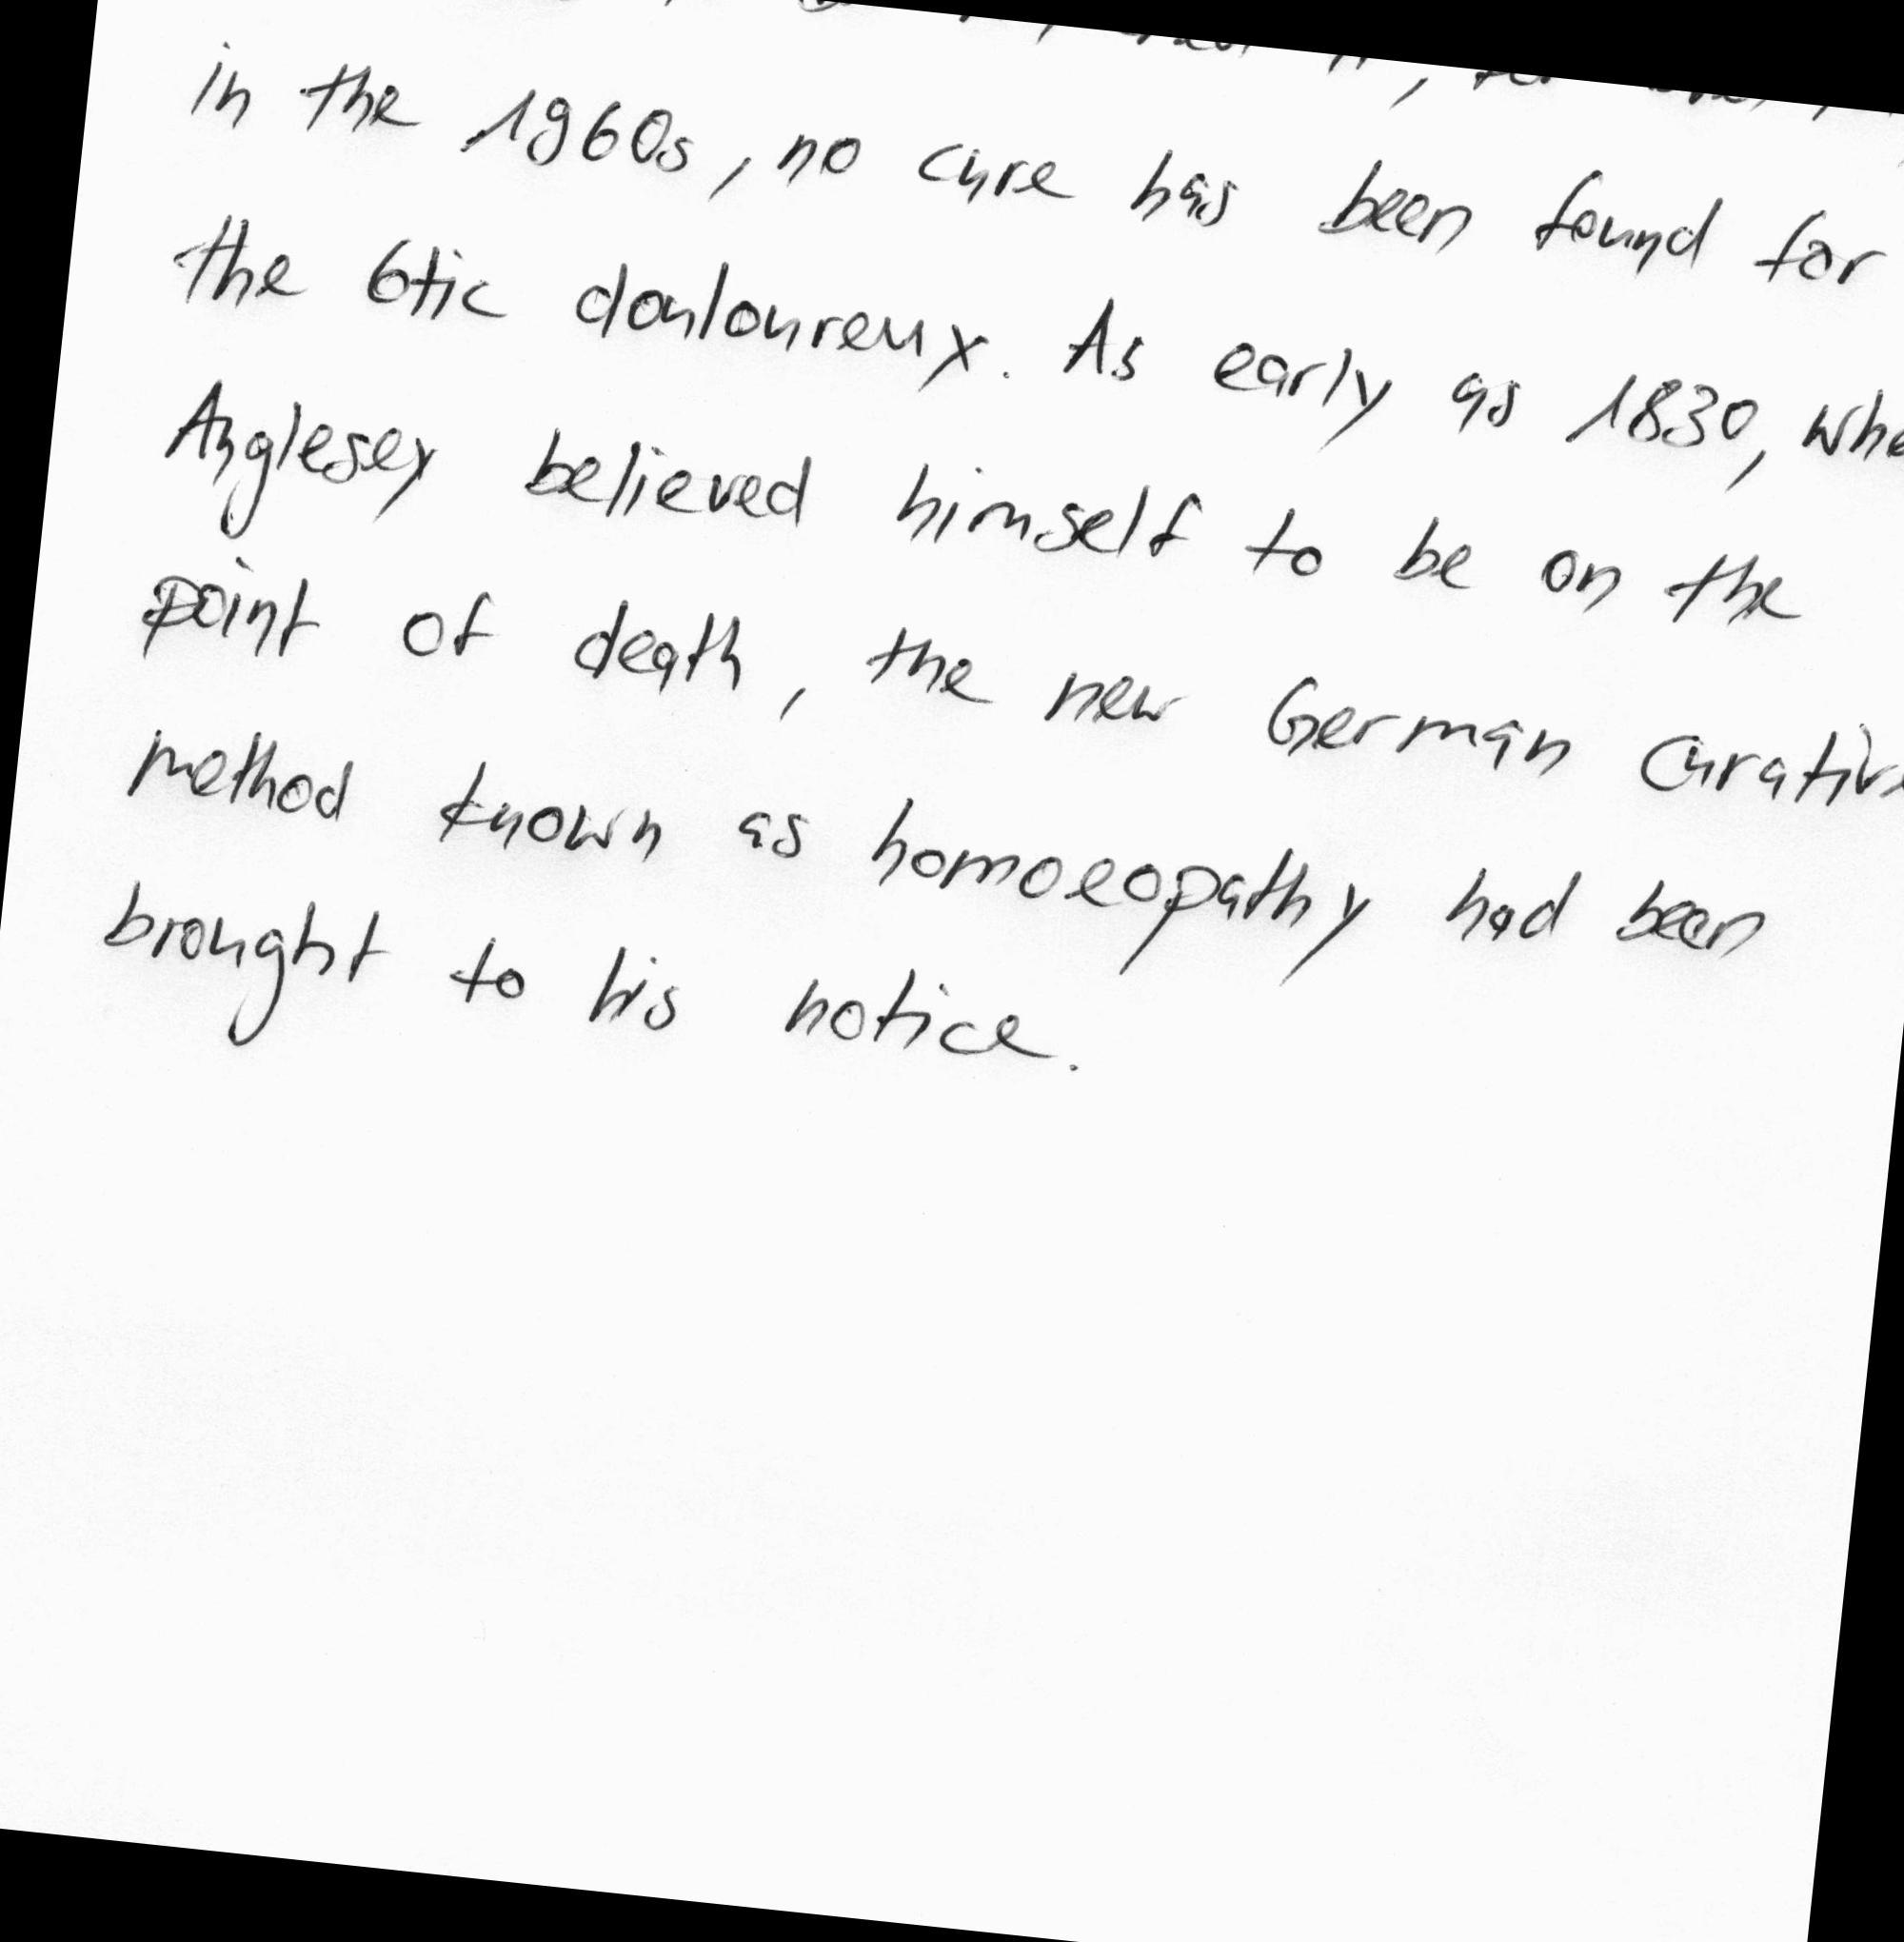 in the 1960s, no cure has been found for
the 6tic douloureux. As early as 1830, whe
Anglesey believed himself to be on the
point of death, the new German curative
method known as homoeopathy had been
brought to his notice.